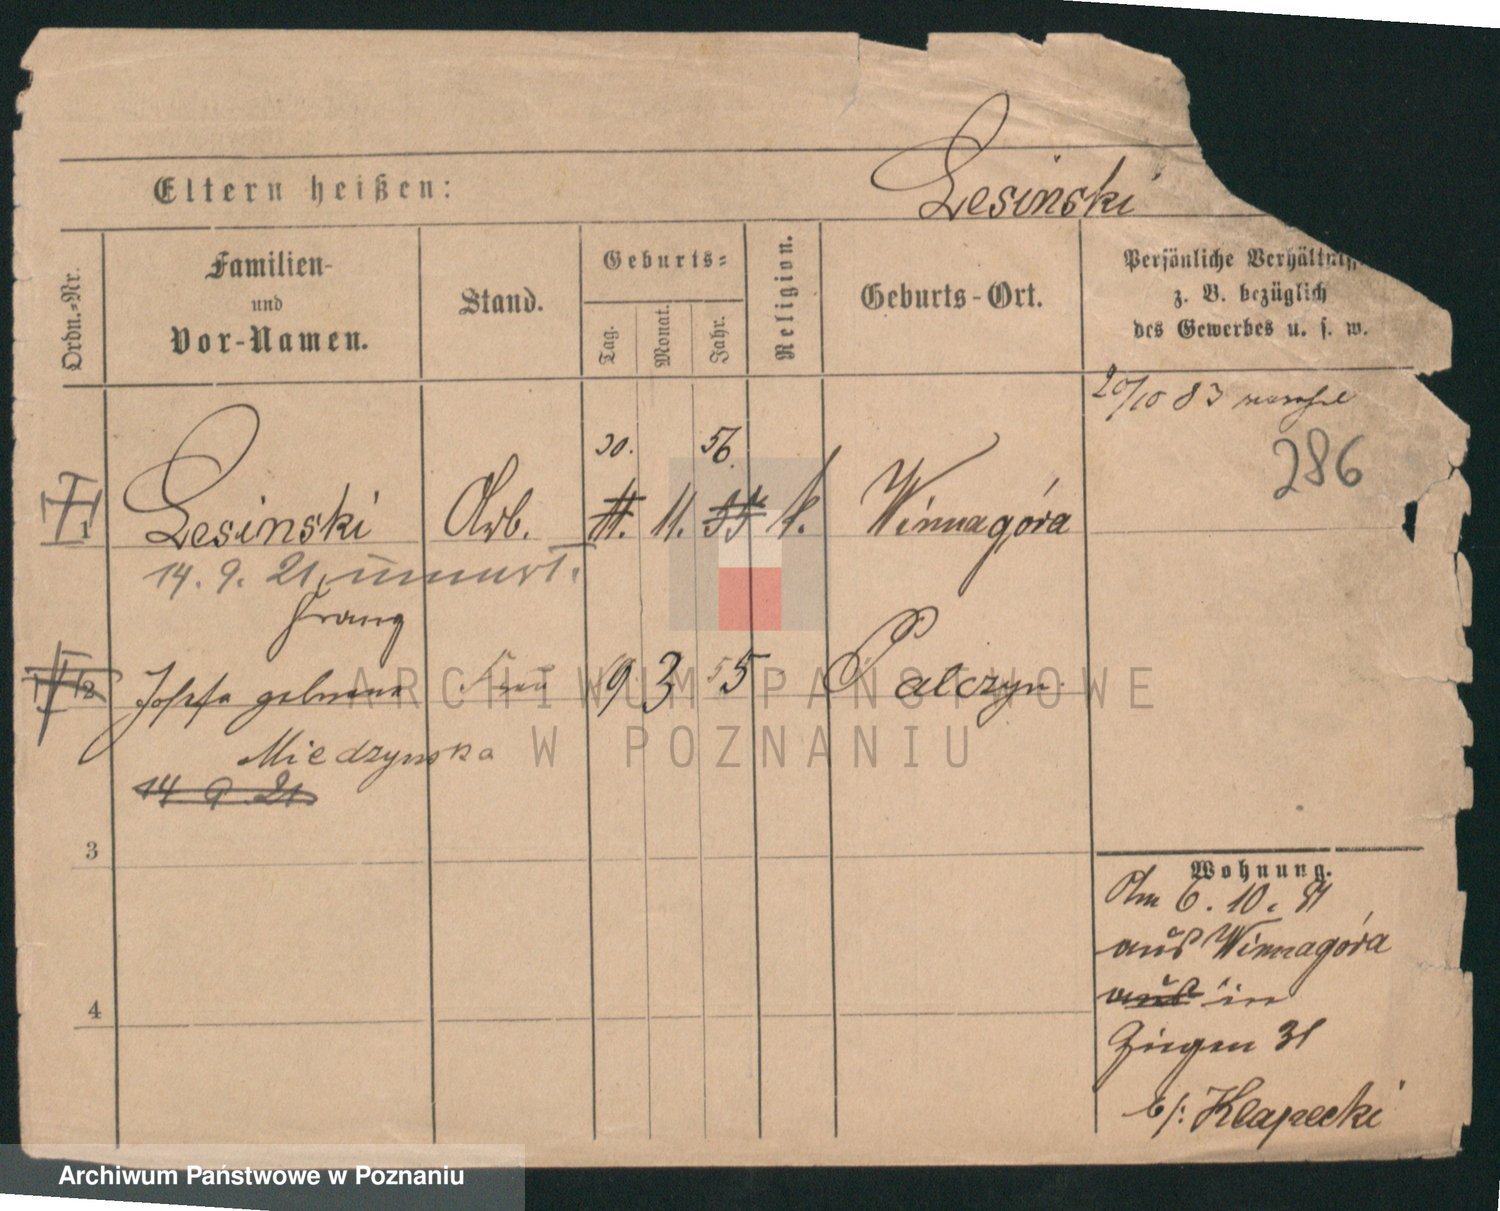 Lesinski
Eltern heißen:
Ordn.-Nr.
Familien-
und
Vor-Namen.
Stand.
Geburts-
Tag.
Monat.
Jahr.
Religion.
Geburts-Ort.
Persönliche Verhältniss
z. B. bezüglich
des Gewerbes u. s. w.
20/10 83
286
30. 56.
1 Lesinski Arb. 11. 11. 55 k. Winnagóra
14. 9. 21.
Franz
2 Josefa geborene Frau 19 3 55 Palczyn
Miedzynska
14. 9. 21.
3
4
Wohnung.
Am 6. 10. 81
aus Winnagóra
aus in
Ziegen 31
b/: Klapecki
ARCHIWUM PAŃSTWOWE
W POZNANIU
Archiwum Państwowe w Poznaniu